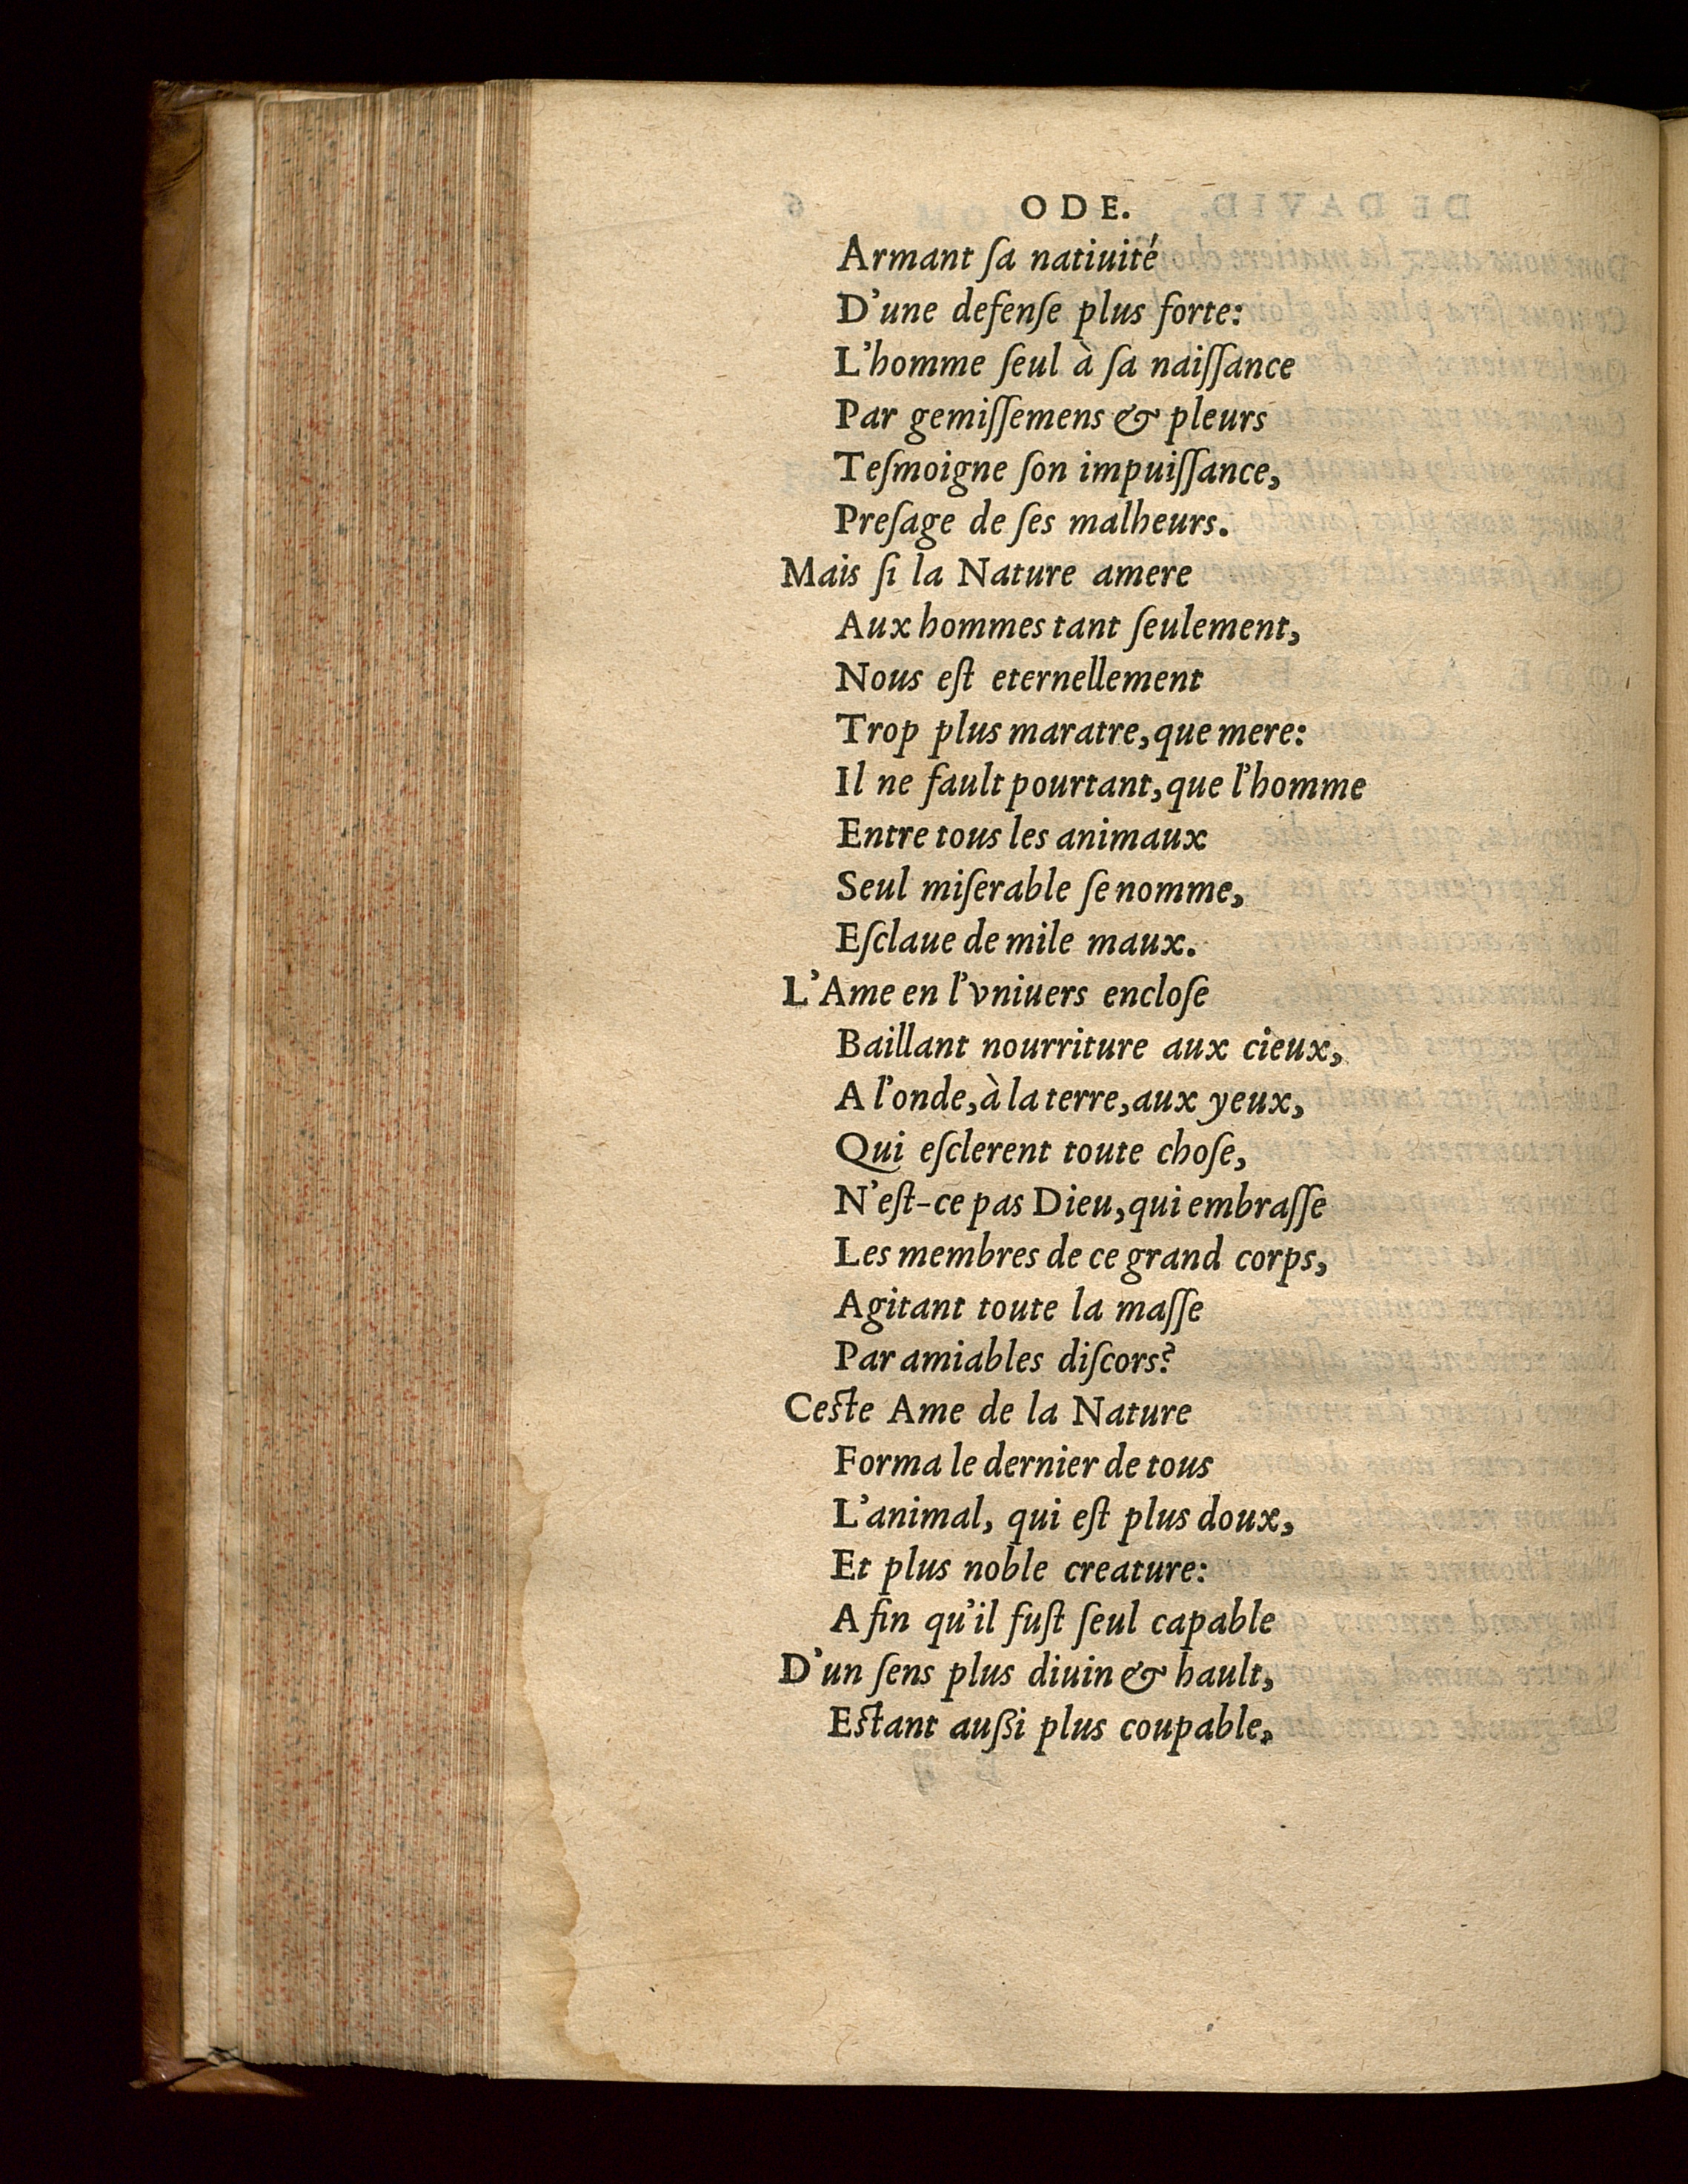 ODE.
Armant ſa natiuité
D'une defenſe plus forte:
L'homme ſeul à ſa naiſſance
Par gemiſſemens & pleurs
Teſmoigne ſon impuiſſance,
Preſage de ſes malheurs.
Mais ſi la Nature amere
Aux hommes tant ſeulement,
Nous eſt eternellement
Trop plus maratre, que mere:
Il ne fault pourtant, que l'homme
Entre tous les animaux
Seul miſerable ſe nomme,
Eſclaue de mile maux.
L'Ame en l'vniuers encloſe
Baillant nourriture aux cieux,
A l'onde, à la terre, aux yeux,
Qui eſclerent toute choſe,
N'eſt-ce pas Dieu, qui embraſſe
Les membres de ce grand corps,
Agitant toute la maſſe
Par amiables diſcors?
Ceſte Ame de la Nature
Forma le dernier de tous
L'animal, qui eſt plus doux,
Et plus noble creature:
A fin qu'il fuſt ſeul capable
D'un ſens plus diuin & hault,
Eſtant außi plus coupable,